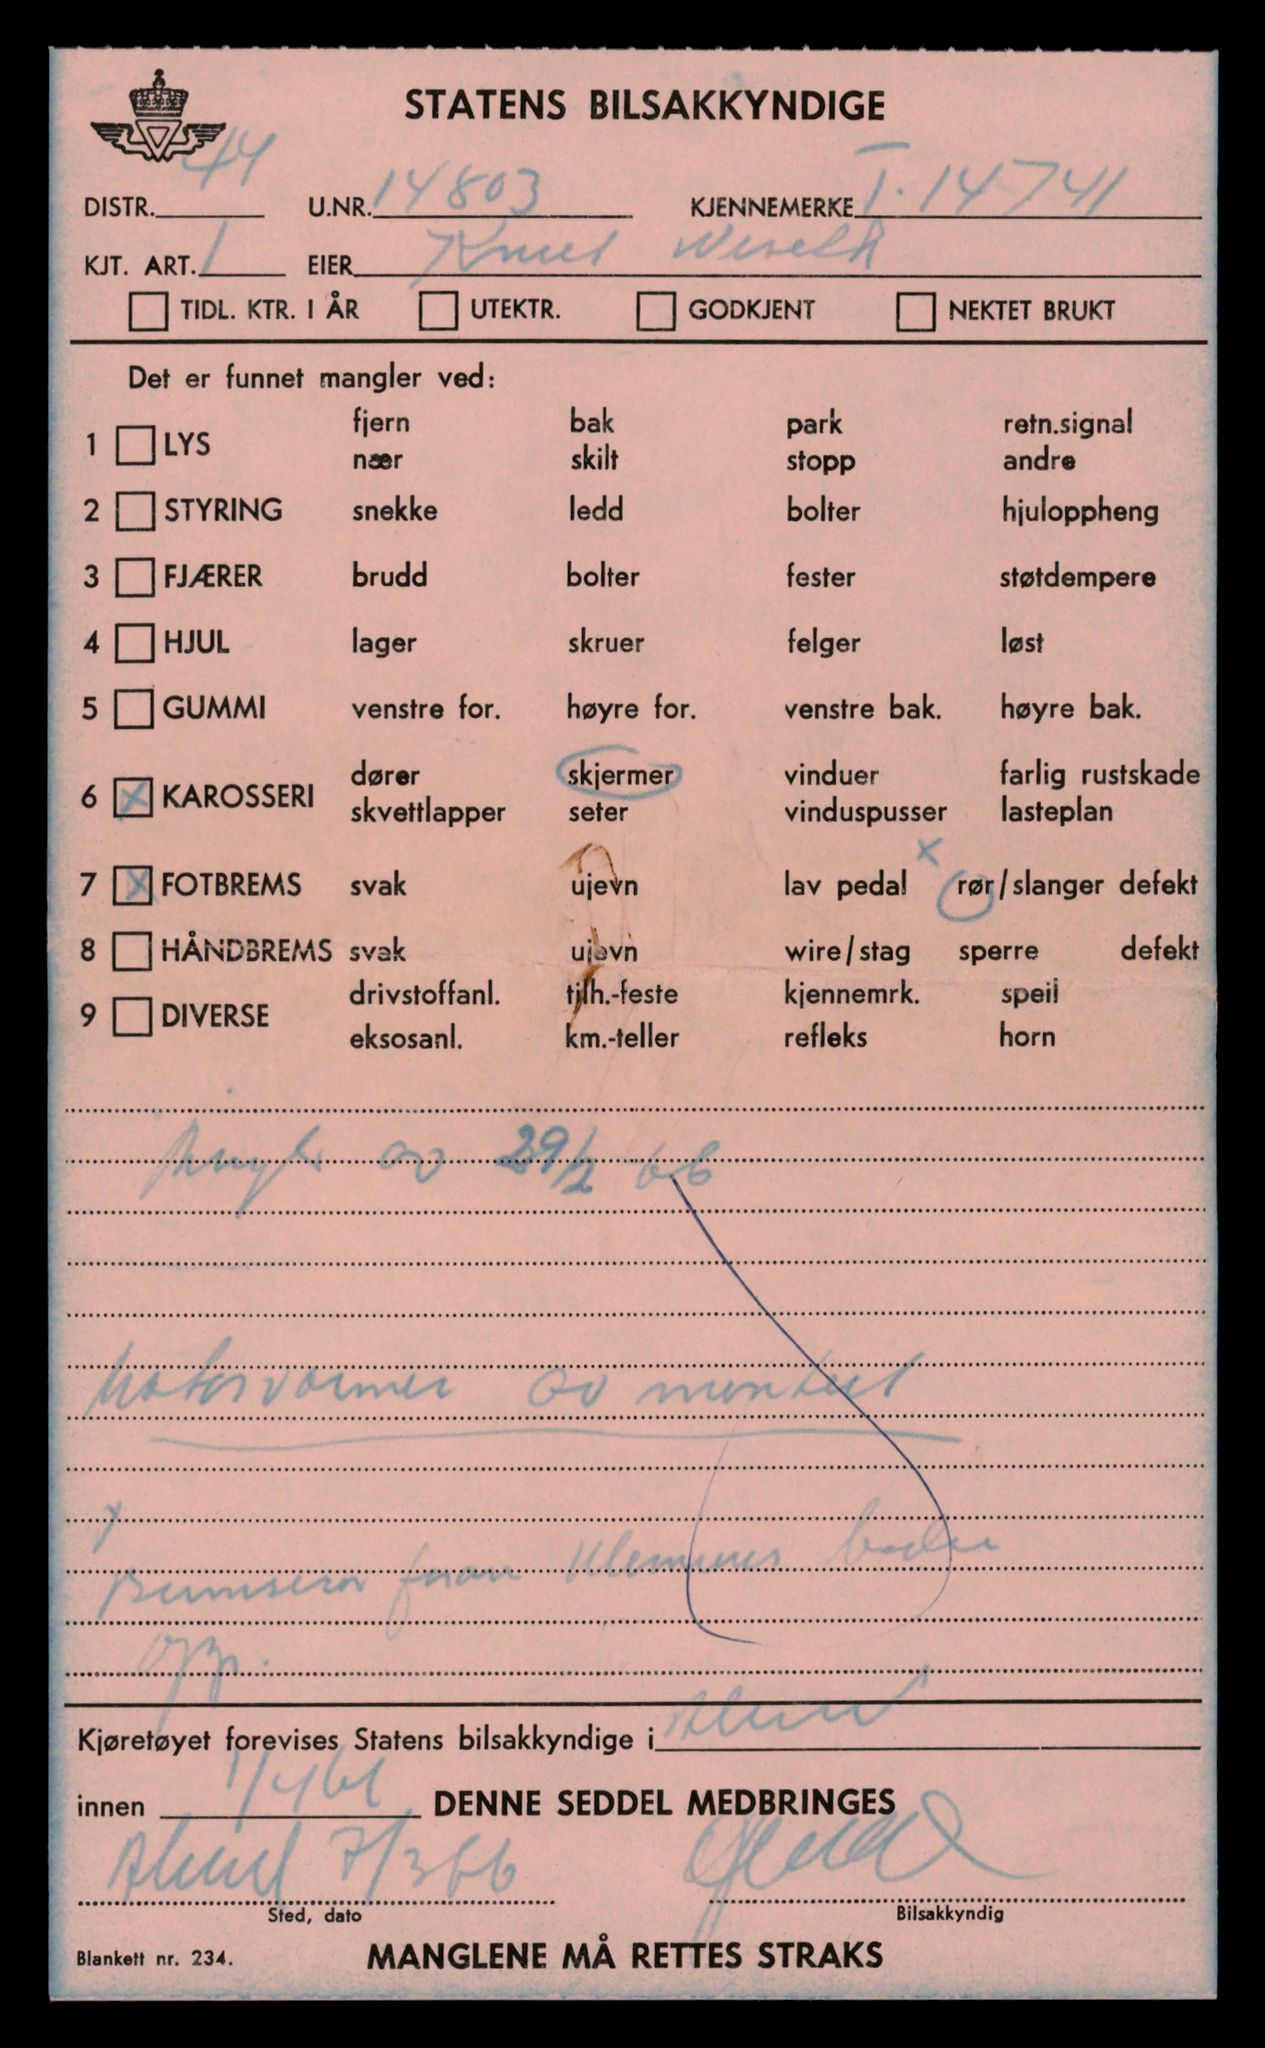 STATENS BILSAKKYNDIGE
DISTR. 44 U.NR. 14803 KJENNEMERKE T-14741
KJT. ART. 1 EIER Knut
TIDL. KTR. I ÅR UTEKTR. GODKJENT NEKTET BRUKT
Det er funnet mangler ved:
1 LYS fjern bak park retn.signal
nær skilt stopp andre
2 STYRING snekke ledd bolter hjuloppheng
3 FJÆRER brudd bolter fester støtdempere
4 HJUL lager skruer felger løst
5 GUMMI venstre for. høyre for. venstre bak. høyre bak.
6 X KAROSSERI dører skjermer vinduer farlig rustskade
skvettlapper seter vinduspusser lasteplan
x
7 X FOTBREMS svak ujevn lav pedal rør/slanger defekt
8 HÅNDBREMS svak ujevn wire/stag sperre defekt
9 DIVERSE drivstoffanl. tilh.-feste kjennemrk. speil
eksosanl. km.-teller refleks horn
av 29/2 66
Motorvarmer av montert
x
foran
opp.
Kjøretøyet forevises Statens bilsakkyndige i
innen DENNE SEDDEL MEDBRINGES
7/3 66
Sted, dato Bilsakkyndig
Blankett nr. 234. MANGLENE MÅ RETTES STRAKS